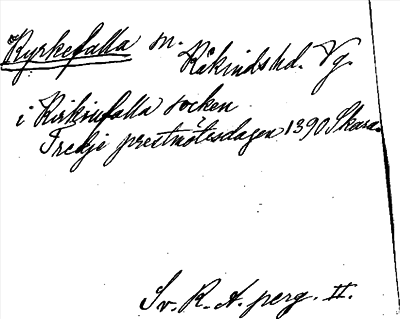 Kyrkefalla sn. Kåkindshd. Vg.
i Kirkiufalla socken
Tredje prestmötesdagen 1390 Skara.
Sv. R. A. perg. II.